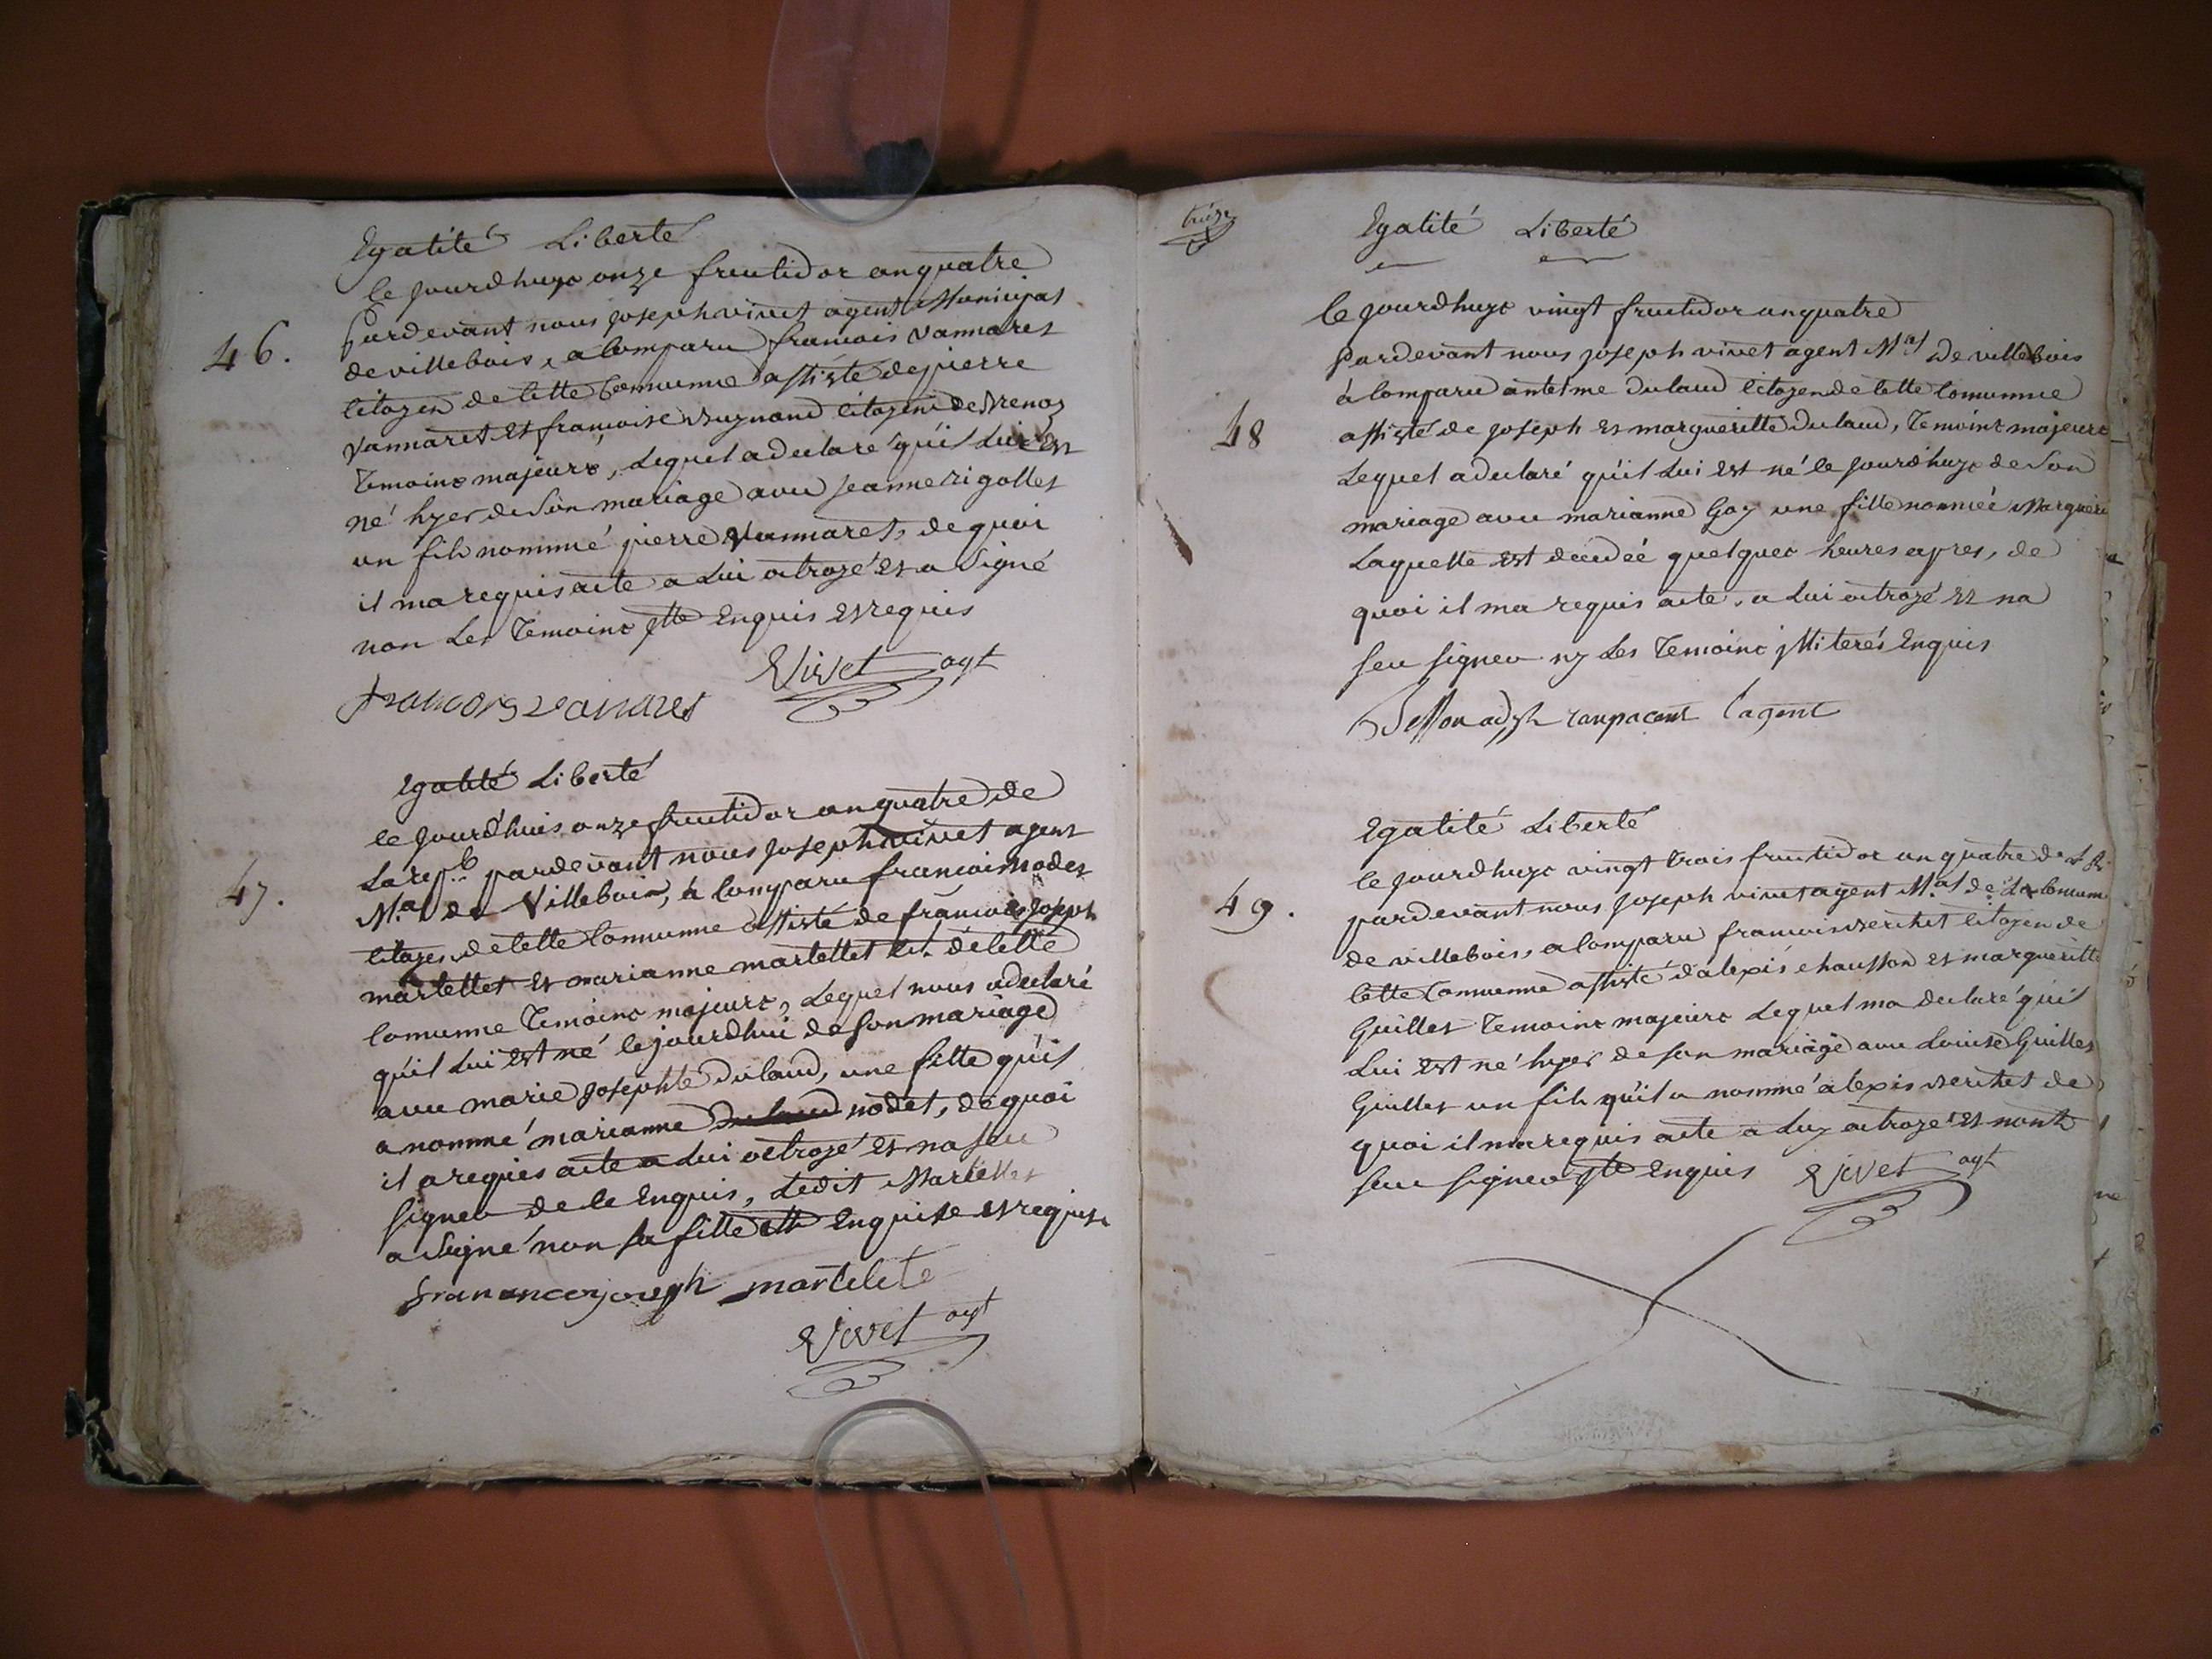 Egalité Liberté
le jourdhuyc onze fructidor an quatre
Pardevant nous joseph vivet agent Municipal
46.
de villebois, a comparu francois vannaret
citoyen de cette commune assisté de pierre
vannaret et francoise citoyens de
temoins majeurs, Lequel a declaré qu'il Lui est
né hyer de son mariage avec jeanne rigollet
un fils nommé pierre vannaret, de quoi
il ma requis acte a Lui octroyé et a signé
non Les temoins enquis et requis
francois vannaret Vivet agt
Egalité Liberté
le jourd'huis onze fructidor an quatre de
La repb pardevant nous joseph vivet agent
47.
M.al de Villebois, a comparu francois nodet
citoyen de cette commune assisté de francois joseph
martellet et marianne martellet cit. de cette
commune temoins majeurs, Lequel nous a declaré
qu'il Lui est né le jourdhui de son mariage
avec marie josephte dulaud, une fille qu'il
a nommé marianne dulaud nodet, de quoi
il a requis acte a Lui octroyé et na seu
signer de ce enquis, Ledit Martellet
a signé non sa fille enquise et requise
joseph martelete
Vivet agt
treize
Egalité Liberté
le jourdhuyc vingt fructidor an quatre
pardevant nous joseph vivet agent M.al de villebois
à comparu antelme dulaud citoyen de cette commune
48
assisté de joseph et margueritte dulaud, temoins majeurs
Lequel a declaré qu'il Lui est né le jourd'huyc de son
mariage avec marianne Gay une fille nommée Margueri
Laquelle est decedeé quelques heures apres, de
quoi il ma requis acte, a Lui octroyé et na
seu signer ny Les temoins enquis
adjt l'agent
Egalité Liberté
le jourdhuyc vingt trois fructidor an quatre de L R
pardevant nous joseph vivet agent M.al de La commune
49.
de villebois, a comparu francois citoyen de
cette commune assisté d'alexis chausson et margueritte
Guillet temoins majeurs Lequel ma declaré qu'il
Lui est né hyer de son mariage avec Louise Guillet
Guillet un fils qu'il a nommé alexis de
quoi il ma requis acte a Luy octroyé et nont
seu signer enquis Vivet agt